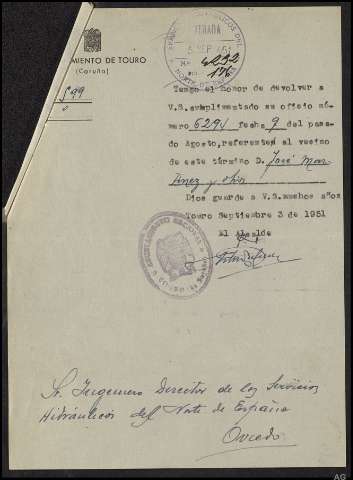 MIENTO DE TOURO
(Coruña)
599
ENTRADA
5 SEP. 951
Nº 4232
176
Tengo el honor de devolver a
V.S. cumplimentado su oficio nú-
mero 6294 fecha 9 del pasa-
do Agosto, referente al vecino
de este término D. José Mar
tinez y otros
Dios guarde a V.S. muchos años
Touro Septiembre 3 de 1951
El Alcalde
Sr. Ingeniero Director de los Servicios
Hidráulicos del Norte de España
Oviedo
AG